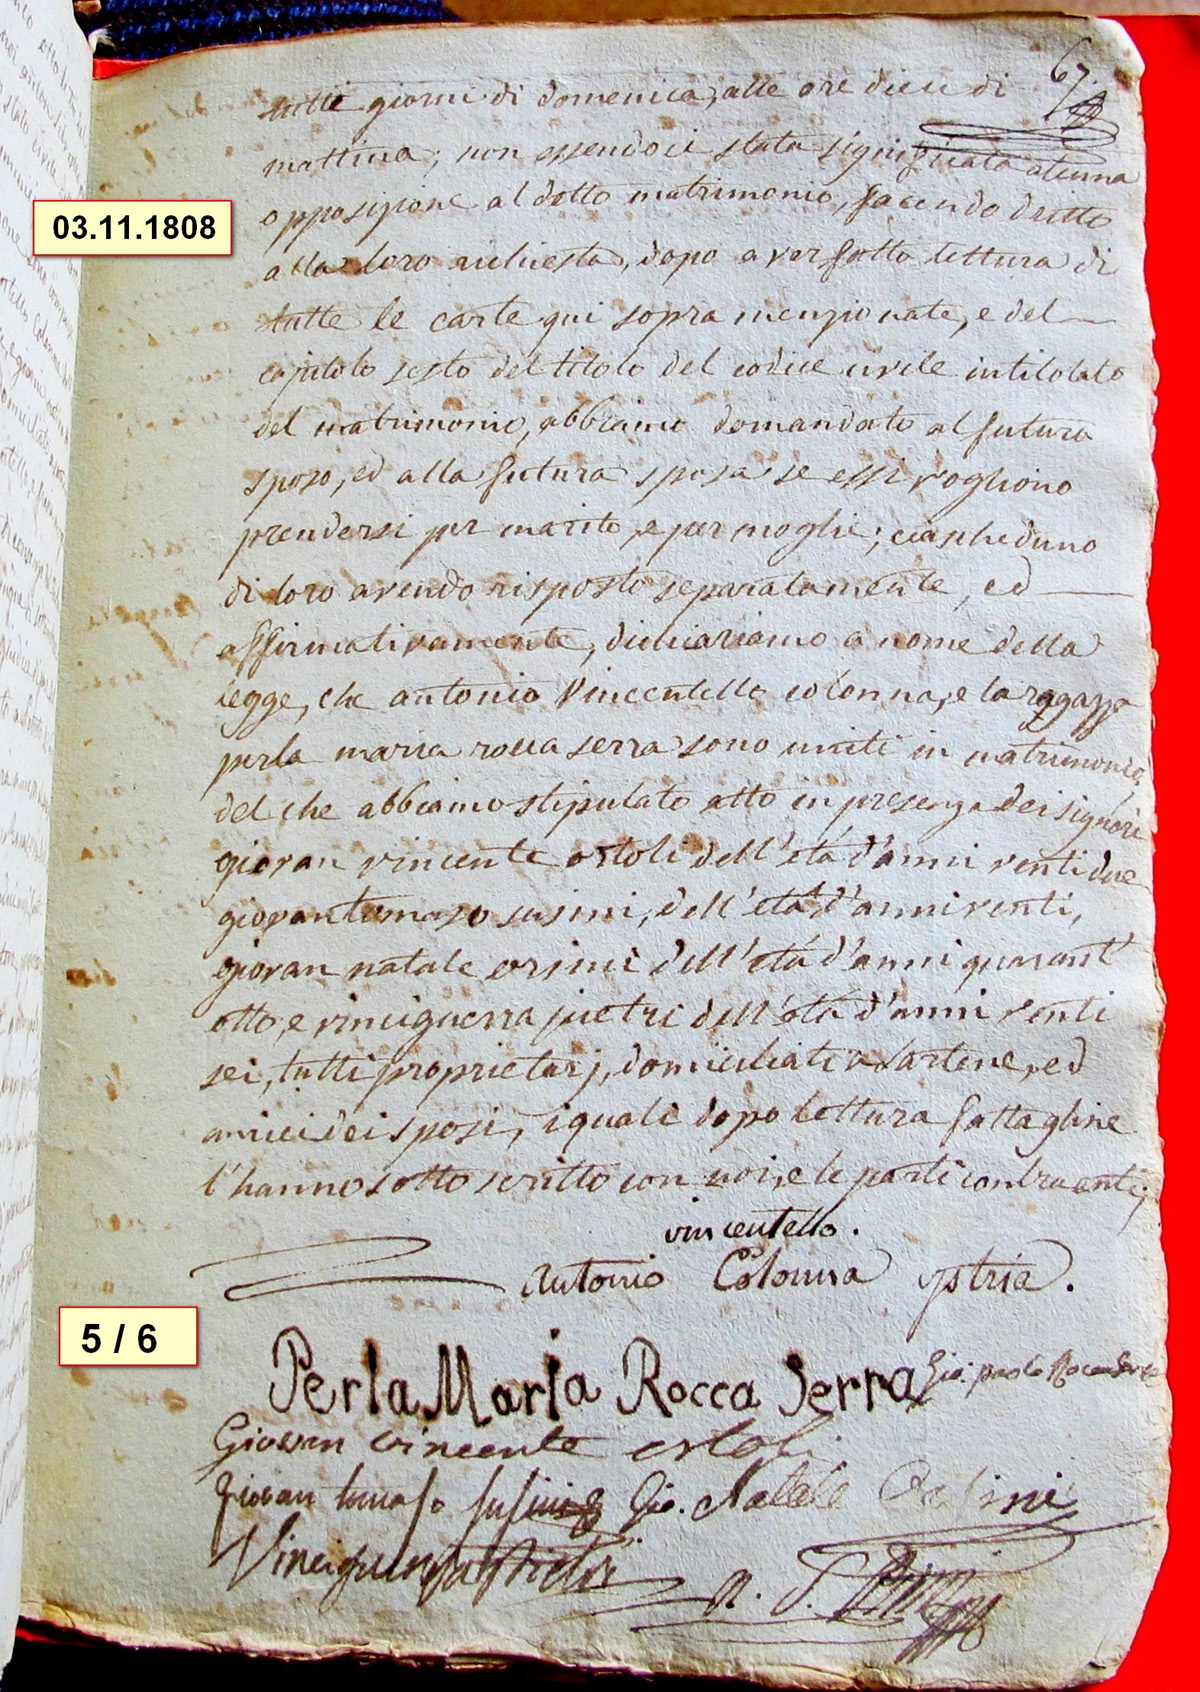 67.
tutti giorni di domenica, alle ore dieci di
mattina; non essendoci stata significata alcuna
opposizione al detto matrimonio, facendo dritto
alla loro richiesta, dopo aver fatto lettura di
tutte le carte qui sopra menzionate, e del
capitolo sesto del titolo del codice civile intitolato
del matrimonio, abbiamo domandato al futuro
sposo, ed alla futura sposa se essi vogliono
prendersi per marito, e per moglie; ciascheduno
di loro avendo risposto separatamente, ed
affirmativamente, dichiariamo a nome della
legge, che antonio Vincentello colonna, e la ragazza
perla maria rocca serra sono uniti in matrimonio,
del che abbiamo stipulato atto in presenza dei signori
giovan vincente ortoli dell'età d'anni venti due
giovantomaso susini, dell'età d'anni venti,
giovan natale orsini dell'età d'anni quarant'
otto, e vinciguerra pietri dell'età d'anni venti
sei, tutti proprietarj, domiciliati a Sartene, ed
amici dei sposi, i quali dopo lettura fattagline
l'hanno sotto scritto con noi, e le parti contraenti;
vincentello.
antonio Colonna ystria.
Perla Maria Rocca Serra Gio. paolo Rocca Serra
Giovan vincente ortoli
giovan tomaso susini Gio. Natale Orsini
Vinciguerra Pietri
03.11.1808
5 / 6